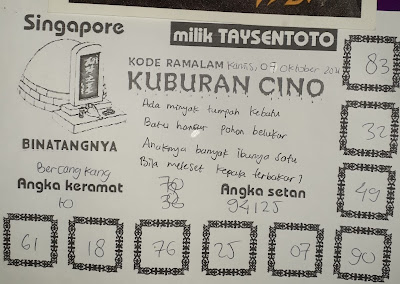 Singapore
milik TAYSENTOTO
KODE RAMALAM Kamis, 09 Oktober
KUBURAN CINO
83
Ada minyak tumpah kebatu
Batu hancur pohon belukar
Anaknya banyak ibunya satu
Bila meleset kepala terbakar !
32
BINATANGNYA
Bercangkang
Angka keramat
10
Angka setan
94125
49
61
18
76
25
07
90